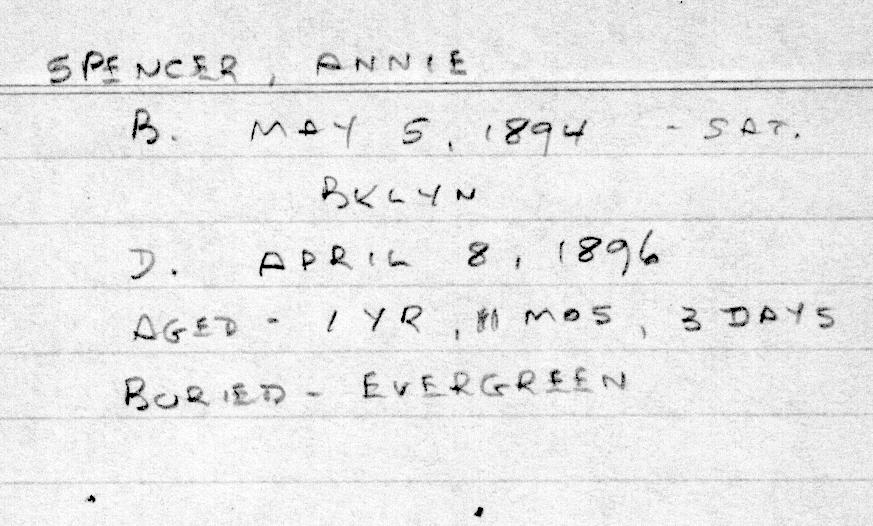 SPENCER, ANNIE
B. MAY 5, 1894 - SAT.
BKLYN
D. APRIL 8, 1896
AGED - 1 YR, 11 MOS, 3 DAYS
BURIED - EVERGREEN